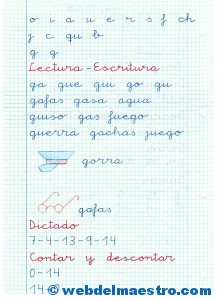 o i a u e r s f ch
j c qu b
g g
Lectura-Escritura
ga gue gui go gu
gafas gasa agua
guiso gas fuego
guerra gachas juego
gorra
gafas
Dictado
7-4-13-9-14
Contar y descontar
0-14
14-0
© webdelmaestro.com